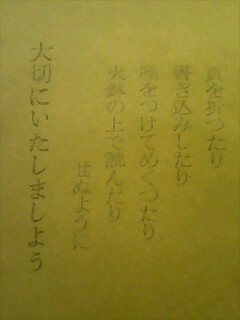 頁を折つたり
書き込みしたり
唾をつけてめくつたり
火鉢の上で読んだり
せぬように
大切にいたしましよう